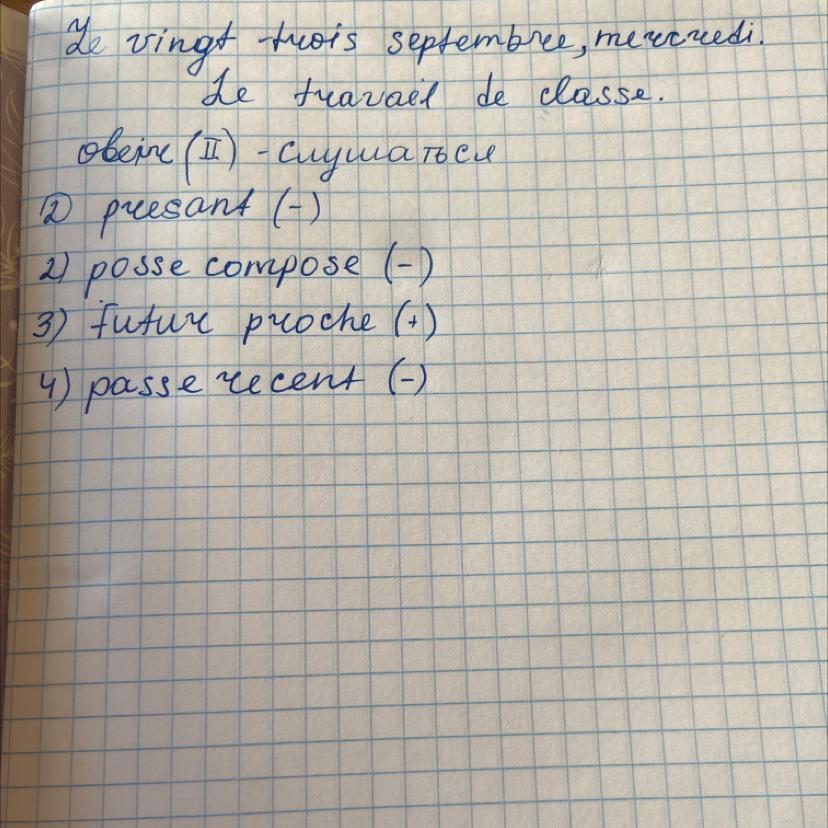 Le vingt-trois septembre, mercredi.
Le travail de classe.
obeir (II) - слушаться
1) presant (-)
2) posse compose (-)
3) futur proche (+)
4) passe recent (-)